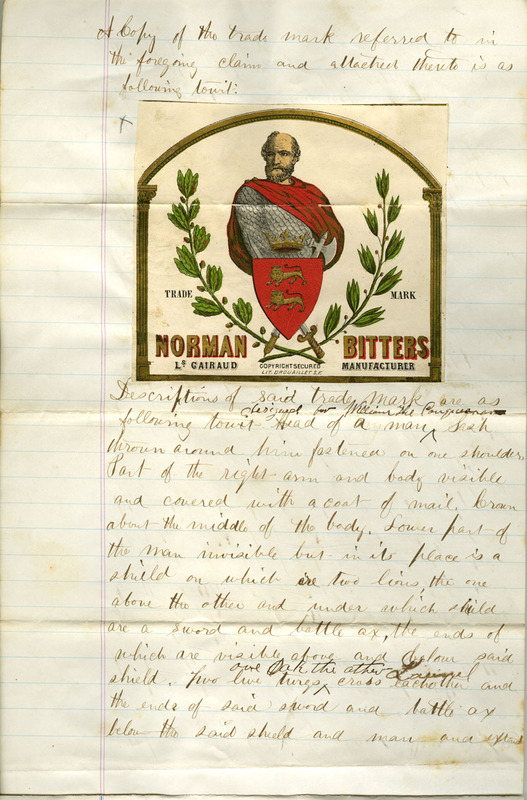 A Copy of the trade mark referred to in
the foregoing claim and attached thereto is as
following towit:
x
TRADE MARK
NORMAN BITTERS
Ls GAIRAUD COPYRIGHT SECURED MANUFACTURER
LIT. DROUAILLET S.F.
Descriptions of said trade mark are as
designed for William the Conqueror
following towit Head of a man ^ Sash
thrown around him fastened on one shoulder,
Part of the right arm and body visible
and covered with a coat of mail. Crown
about the middle of the body. Lower part of
the man invisible but in its place is a
shield on which are two lions, the one
above the other and under which shield
are a sword and battle ax, the ends of
which are visible above and below said
one Oak the other Laurel
shield. Two live twigs ^ cross each other and
the ends of said sword and battle ax
below the said shield and man and